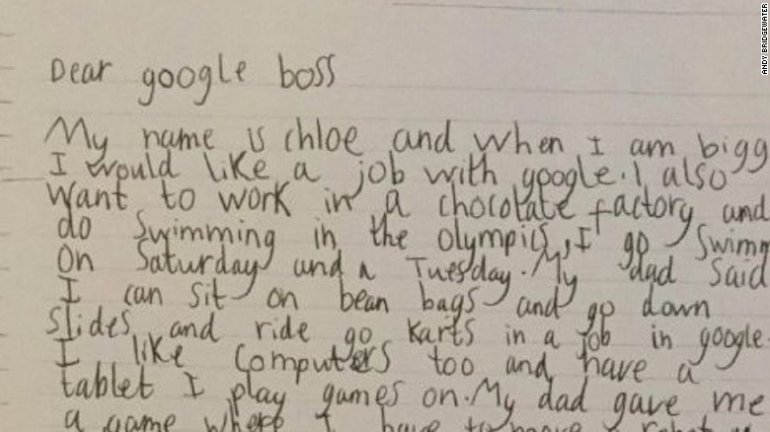 Dear google boss
My name is chloe and when I am bigg
I would like a job with google. I also
want to work in a chocolate factory and
do swimming in the olympics, I go swimm
on Saturday and a Tuesday. My dad said
I can sit on bean bags and go down
slides and ride go karts in a job in google.
I like computers too and have a
tablet I play games on. My dad gave me
a game where I have to
ANDY BRIDGEWATER